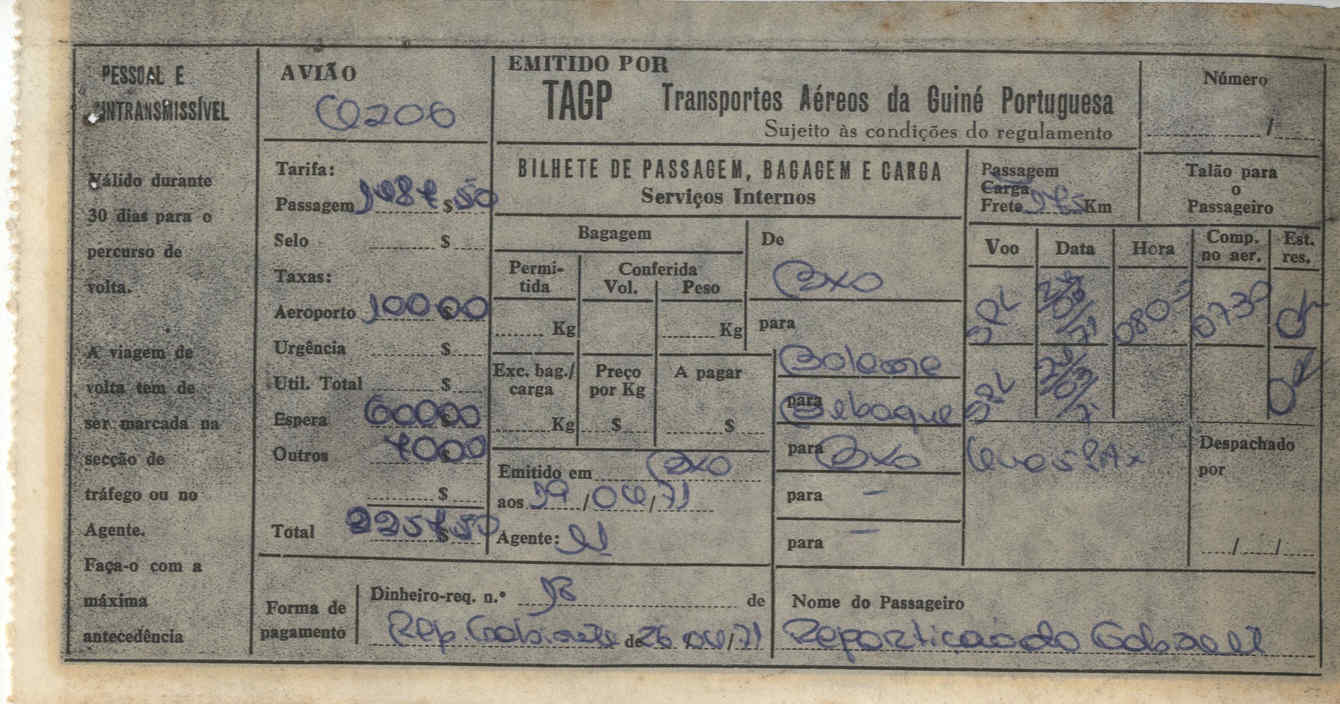 PESSOAL E
INTRANSMISSÍVEL
Válido durante
30 dias para o
percurso de
volta.
A viagem de
volta tem de
ser marcada na
secção de
tráfego ou no
Agente.
Faça-o com a
máxima
antecedência
AVIÃO
Tarifa:
Passagem $ 50
Selo $
Taxas:
Aeroporto 100 00
Urgência $
Util. Total $
Espera 600 00
Outros
$
Total $
EMITIDO POR
TAGP Transportes Aéreos da Guiné Portuguesa
Sujeito às condições do regulamento
Número
/
BILHETE DE PASSAGEM, BAGAGEM E CARGA
Serviços Internos
Passagem
Carga
Frete Km
Talão para
o
Passageiro
Bagagem
Permi-
tida
Conferida
Vol. Peso
Kg Kg
Exc. bag./
carga
Preço
por Kg
A pagar
Kg $ $
Emitido em BXO
aos /
Agente:
De
BXO
para
Bolama
para
Bubaque
para BXO
para —
para —
Voo Data Hora Comp.
no aer. Est.
res.
SPL 0800 0730 OK
SPL OK
Despachado
por
/ /
Forma de
pagamento
Dinheiro-req. n.º de
Rep. Gabinete de
Nome do Passageiro
Repartição do Gabinete